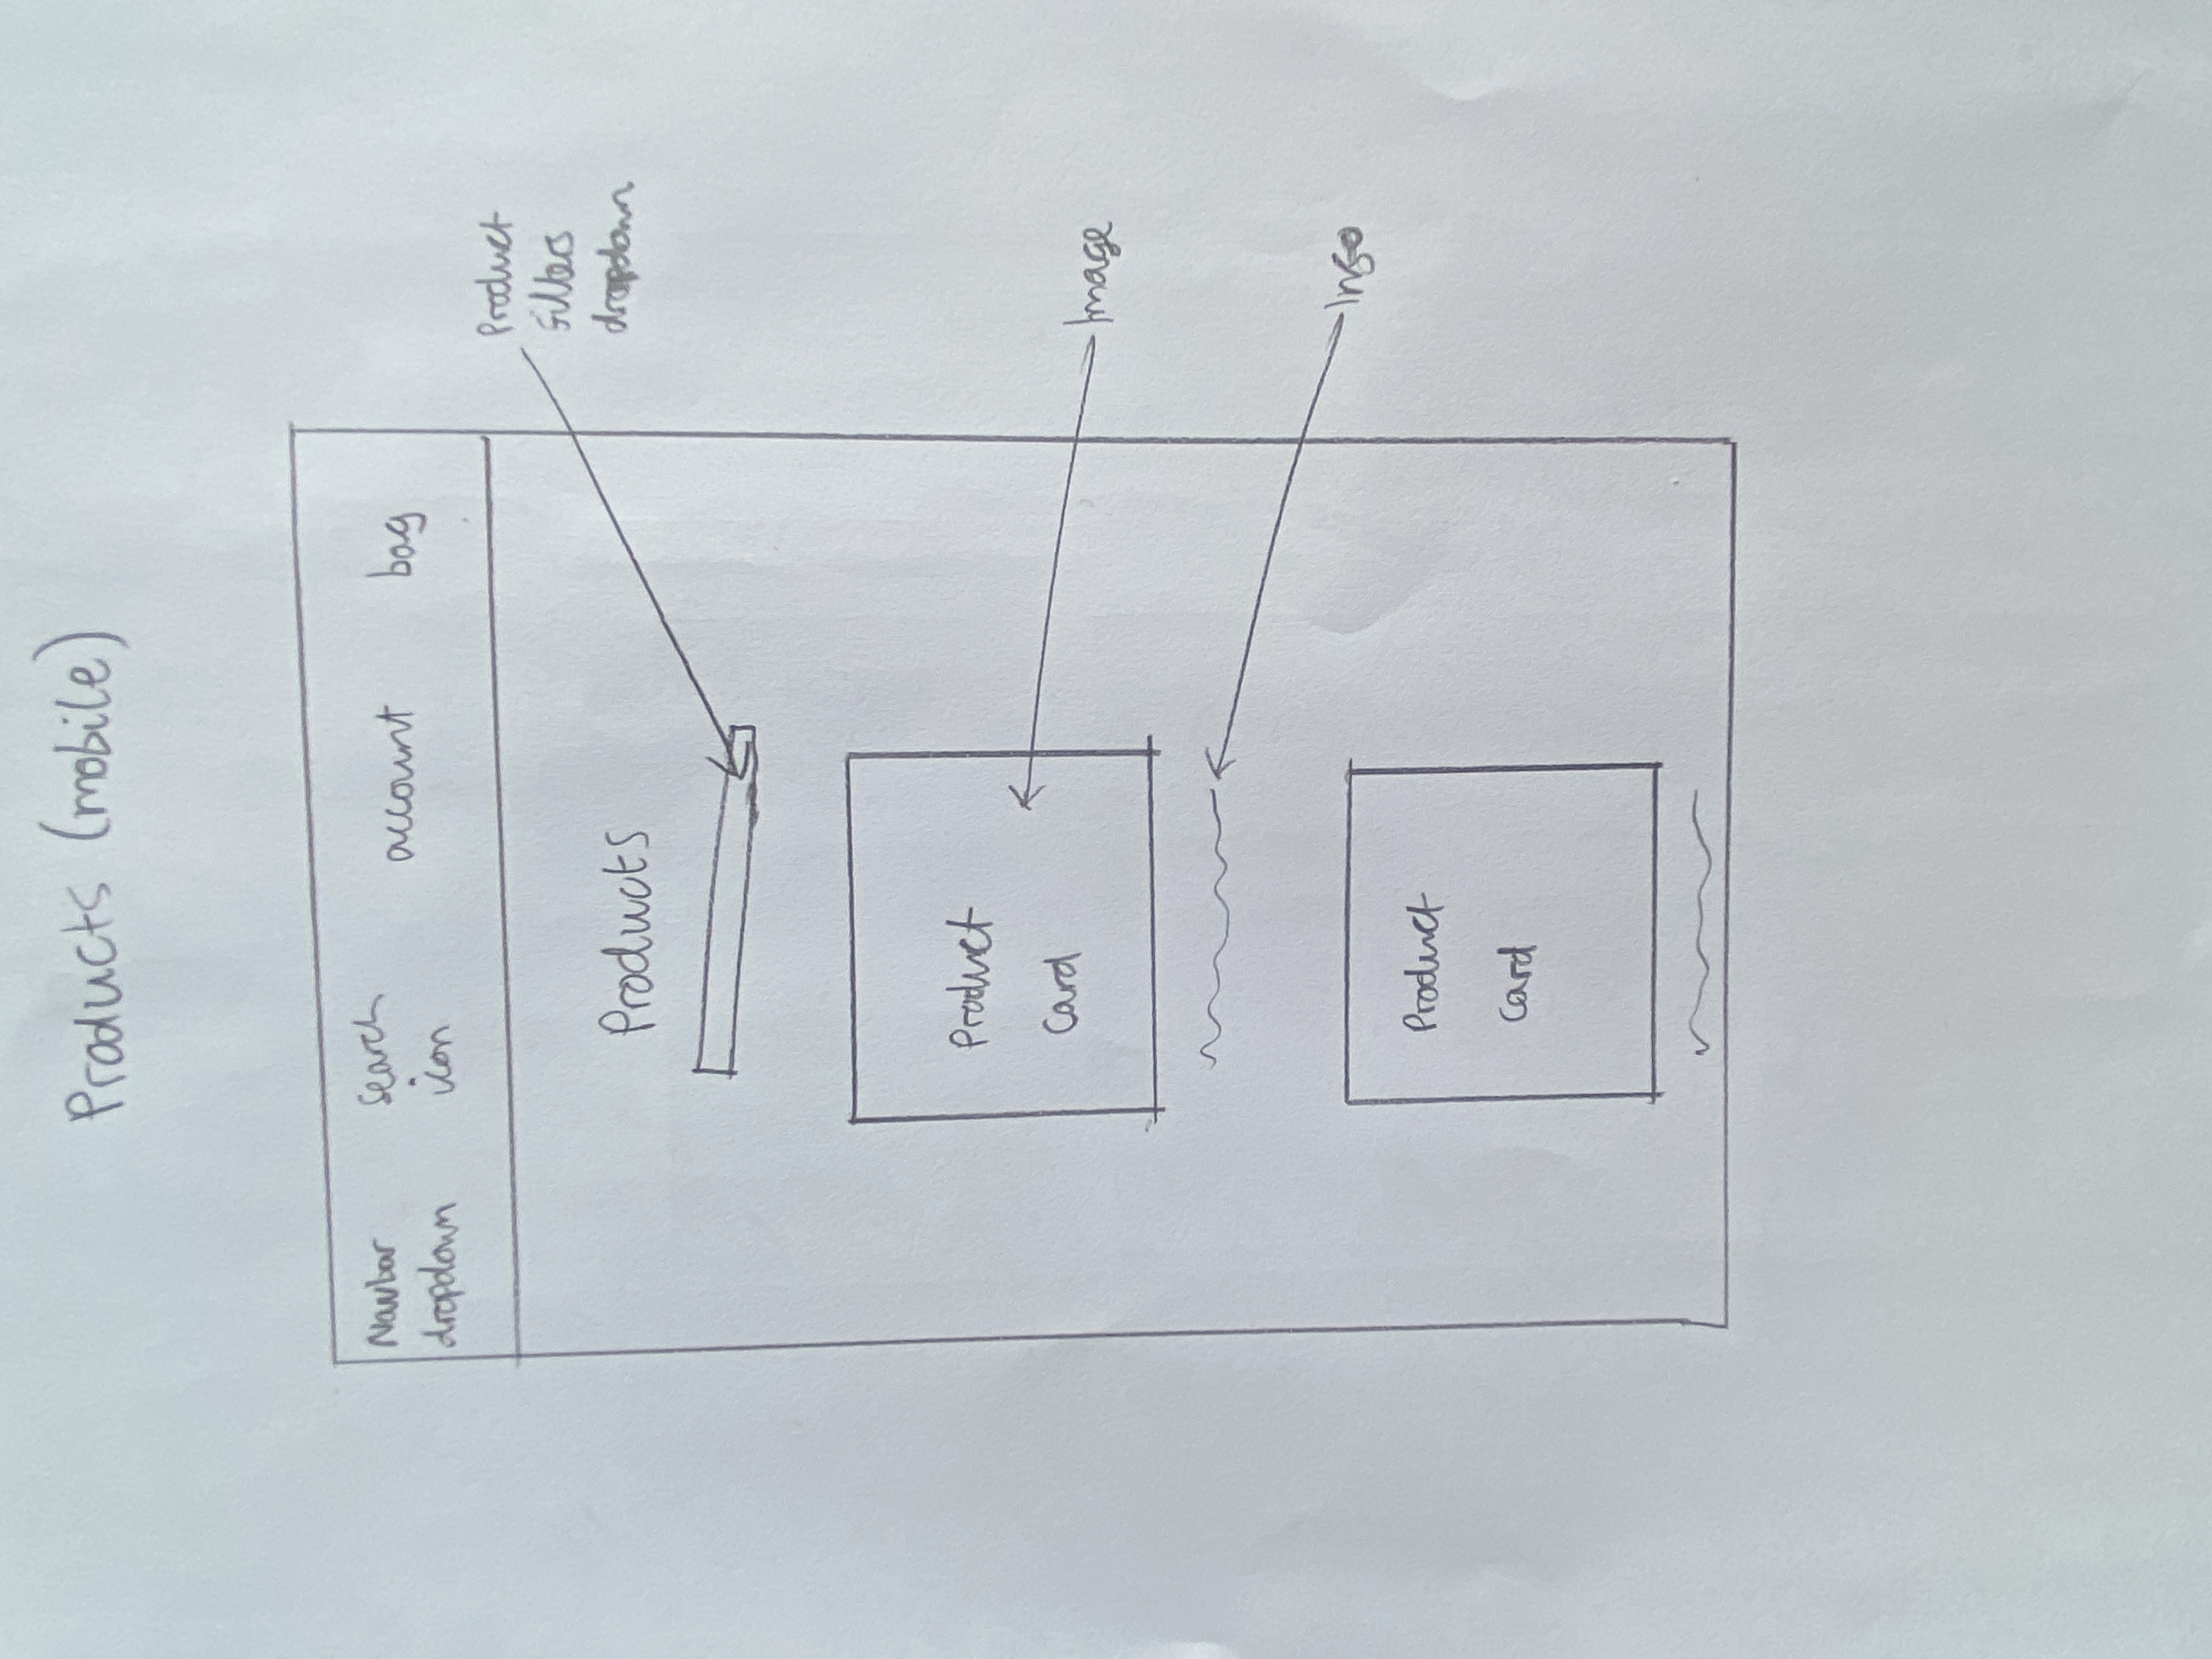 Products (mobile)
Navbar
dropdown
search
icon
account
bag
Product
Filters
dropdown
Products
Product
Card
Image
Info
Product
Card